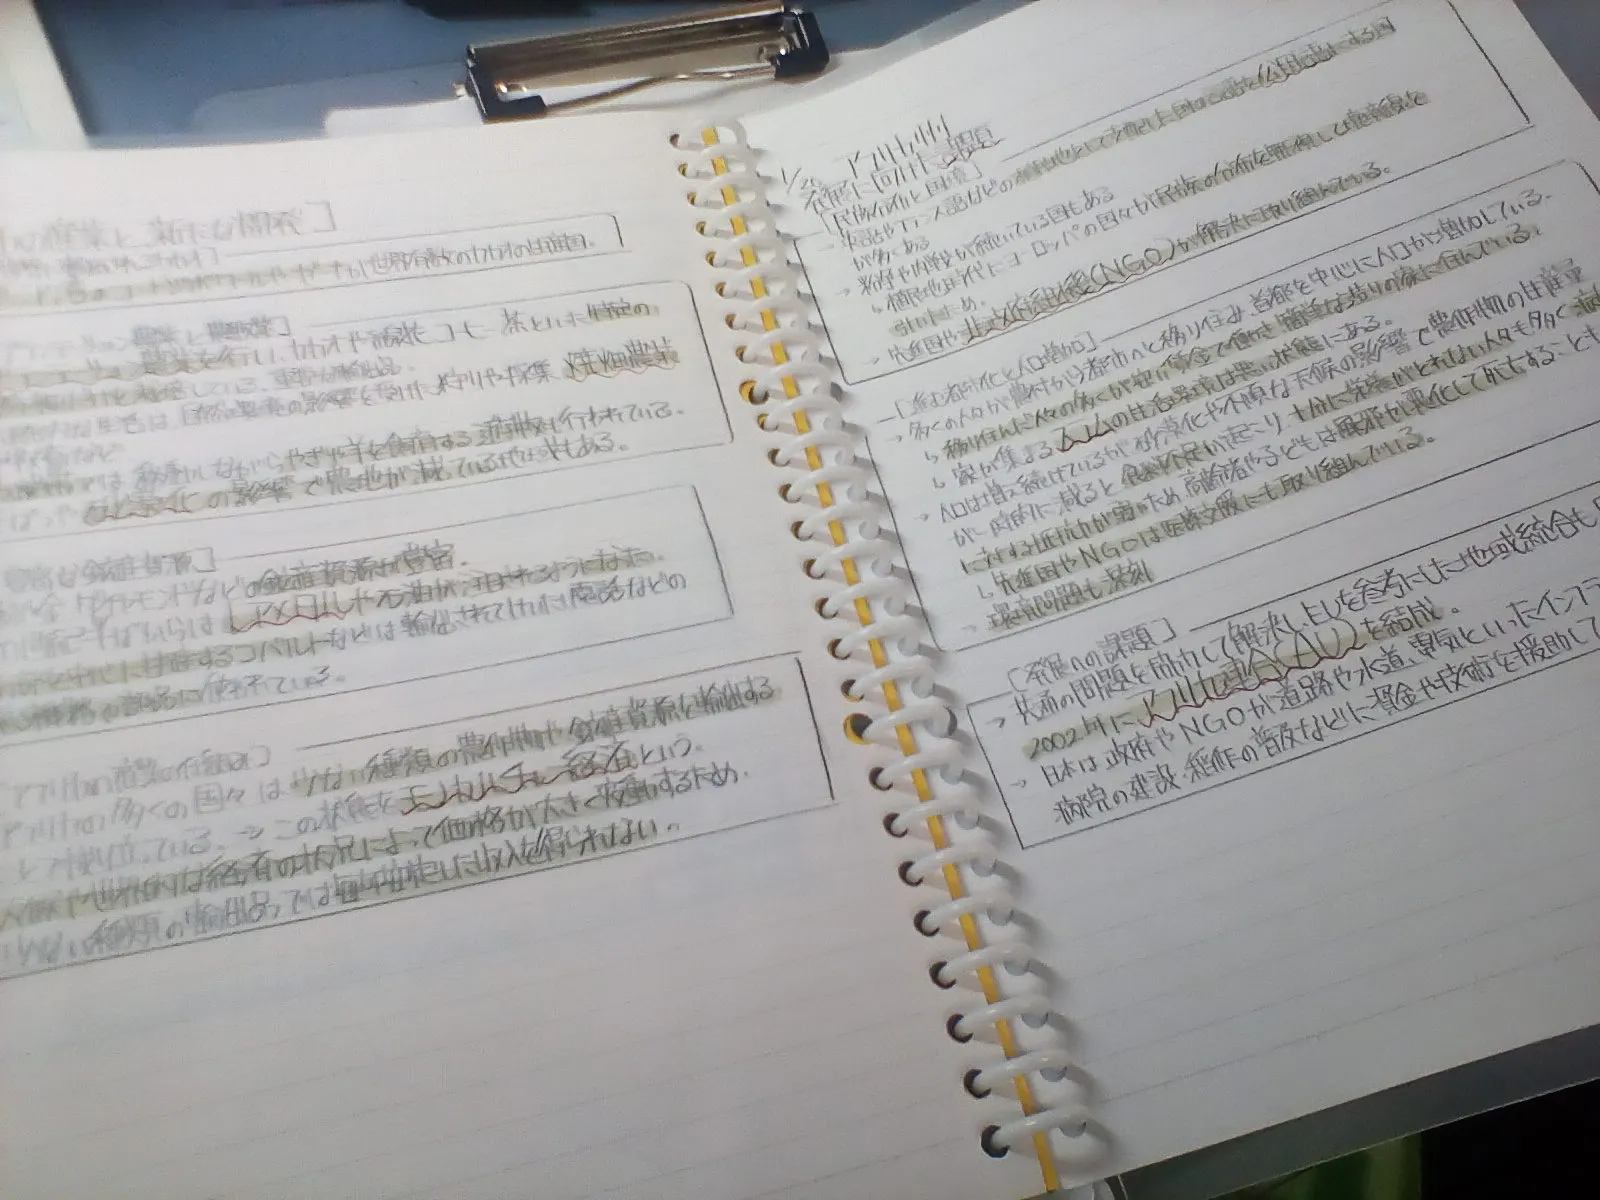 産業と新たな開発]
世界有数のカカオの生産国。
農業を行い、カカオや綿花、コーヒー、茶といった特定の
は自然環境の影響を受け、狩りや採集、焼畑農業
移動しながらやぎや羊を飼育する遊牧も行われている。
砂漠化の影響で農地が減っている地域もある。
鉱産資源]
金、ダイヤモンドなどの鉱産資源が豊富。
レアメタルや石油が注目されるようになった。
に生産するコバルトなどは輸出されて、電話などの
の部品に使われている。
アフリカの産業の
アフリカの多くの国々は少ない種類の農作物や鉱産資源を輸出する
ている。⇒この状態をモノカルチャー経済という。
や世界的な経済の状況によって価格が大きく変動するため、
少ない種類の輸出品では毎年安定した収入を得られない。
アフリカ州
発展に向けた課題
[民族分布と国境]
→英語やフランス語などの植民地として支配した国の言語を公用語にする国
が多くある
→紛争や内戦が続いている国もある
↳植民地時代にヨーロッパの国々が民族の分布を無視して境界線を
引いたため。
→先進国や非政府組織(NGO)が解決に取り組んでいる。
[進む都市化と人口増加]
→多くの人々が農村から都市へと移り住み、首都を中心に人口が増加している。
↳移り住んだ人々の多くが低い賃金で働き、簡単な造りの家に住んでいる。
↳家が集まるスラムの生活環境は悪い状態にある。
→人口は増え続けているが、砂漠化や不順な天候の影響で農作物の生産量
が一時的に減ると食料不足が起こり、十分に栄養がとれない人々も多く、
に対する抵抗力が弱いため、高齢者や子どもは風邪が悪化して死亡することも
↳先進国やNGOは医療支援にも取り組んでいる。
→環境問題も深刻
[発展への課題]
→共通の問題を協力して解決し、EUを参考にした地域統合も
2002年にアフリカ連合(AU)を結成。
→日本は政府やNGOが道路や水道、電気といったインフラ
病院の建設、稲作の普及などに資金や技術を援助して